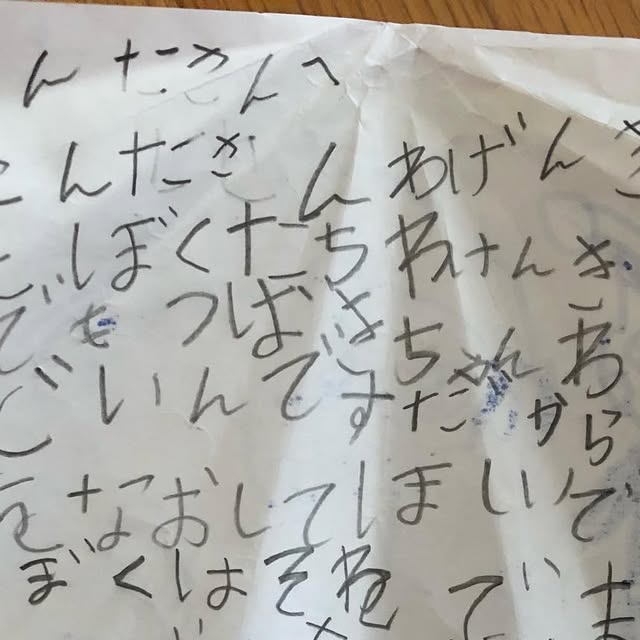 んたさんへ
さんたさんわげんき
ぼくたちわけんき
でも つばさちゃんわ
いんですたから
をなおしてほしいで
ぼくはそれ